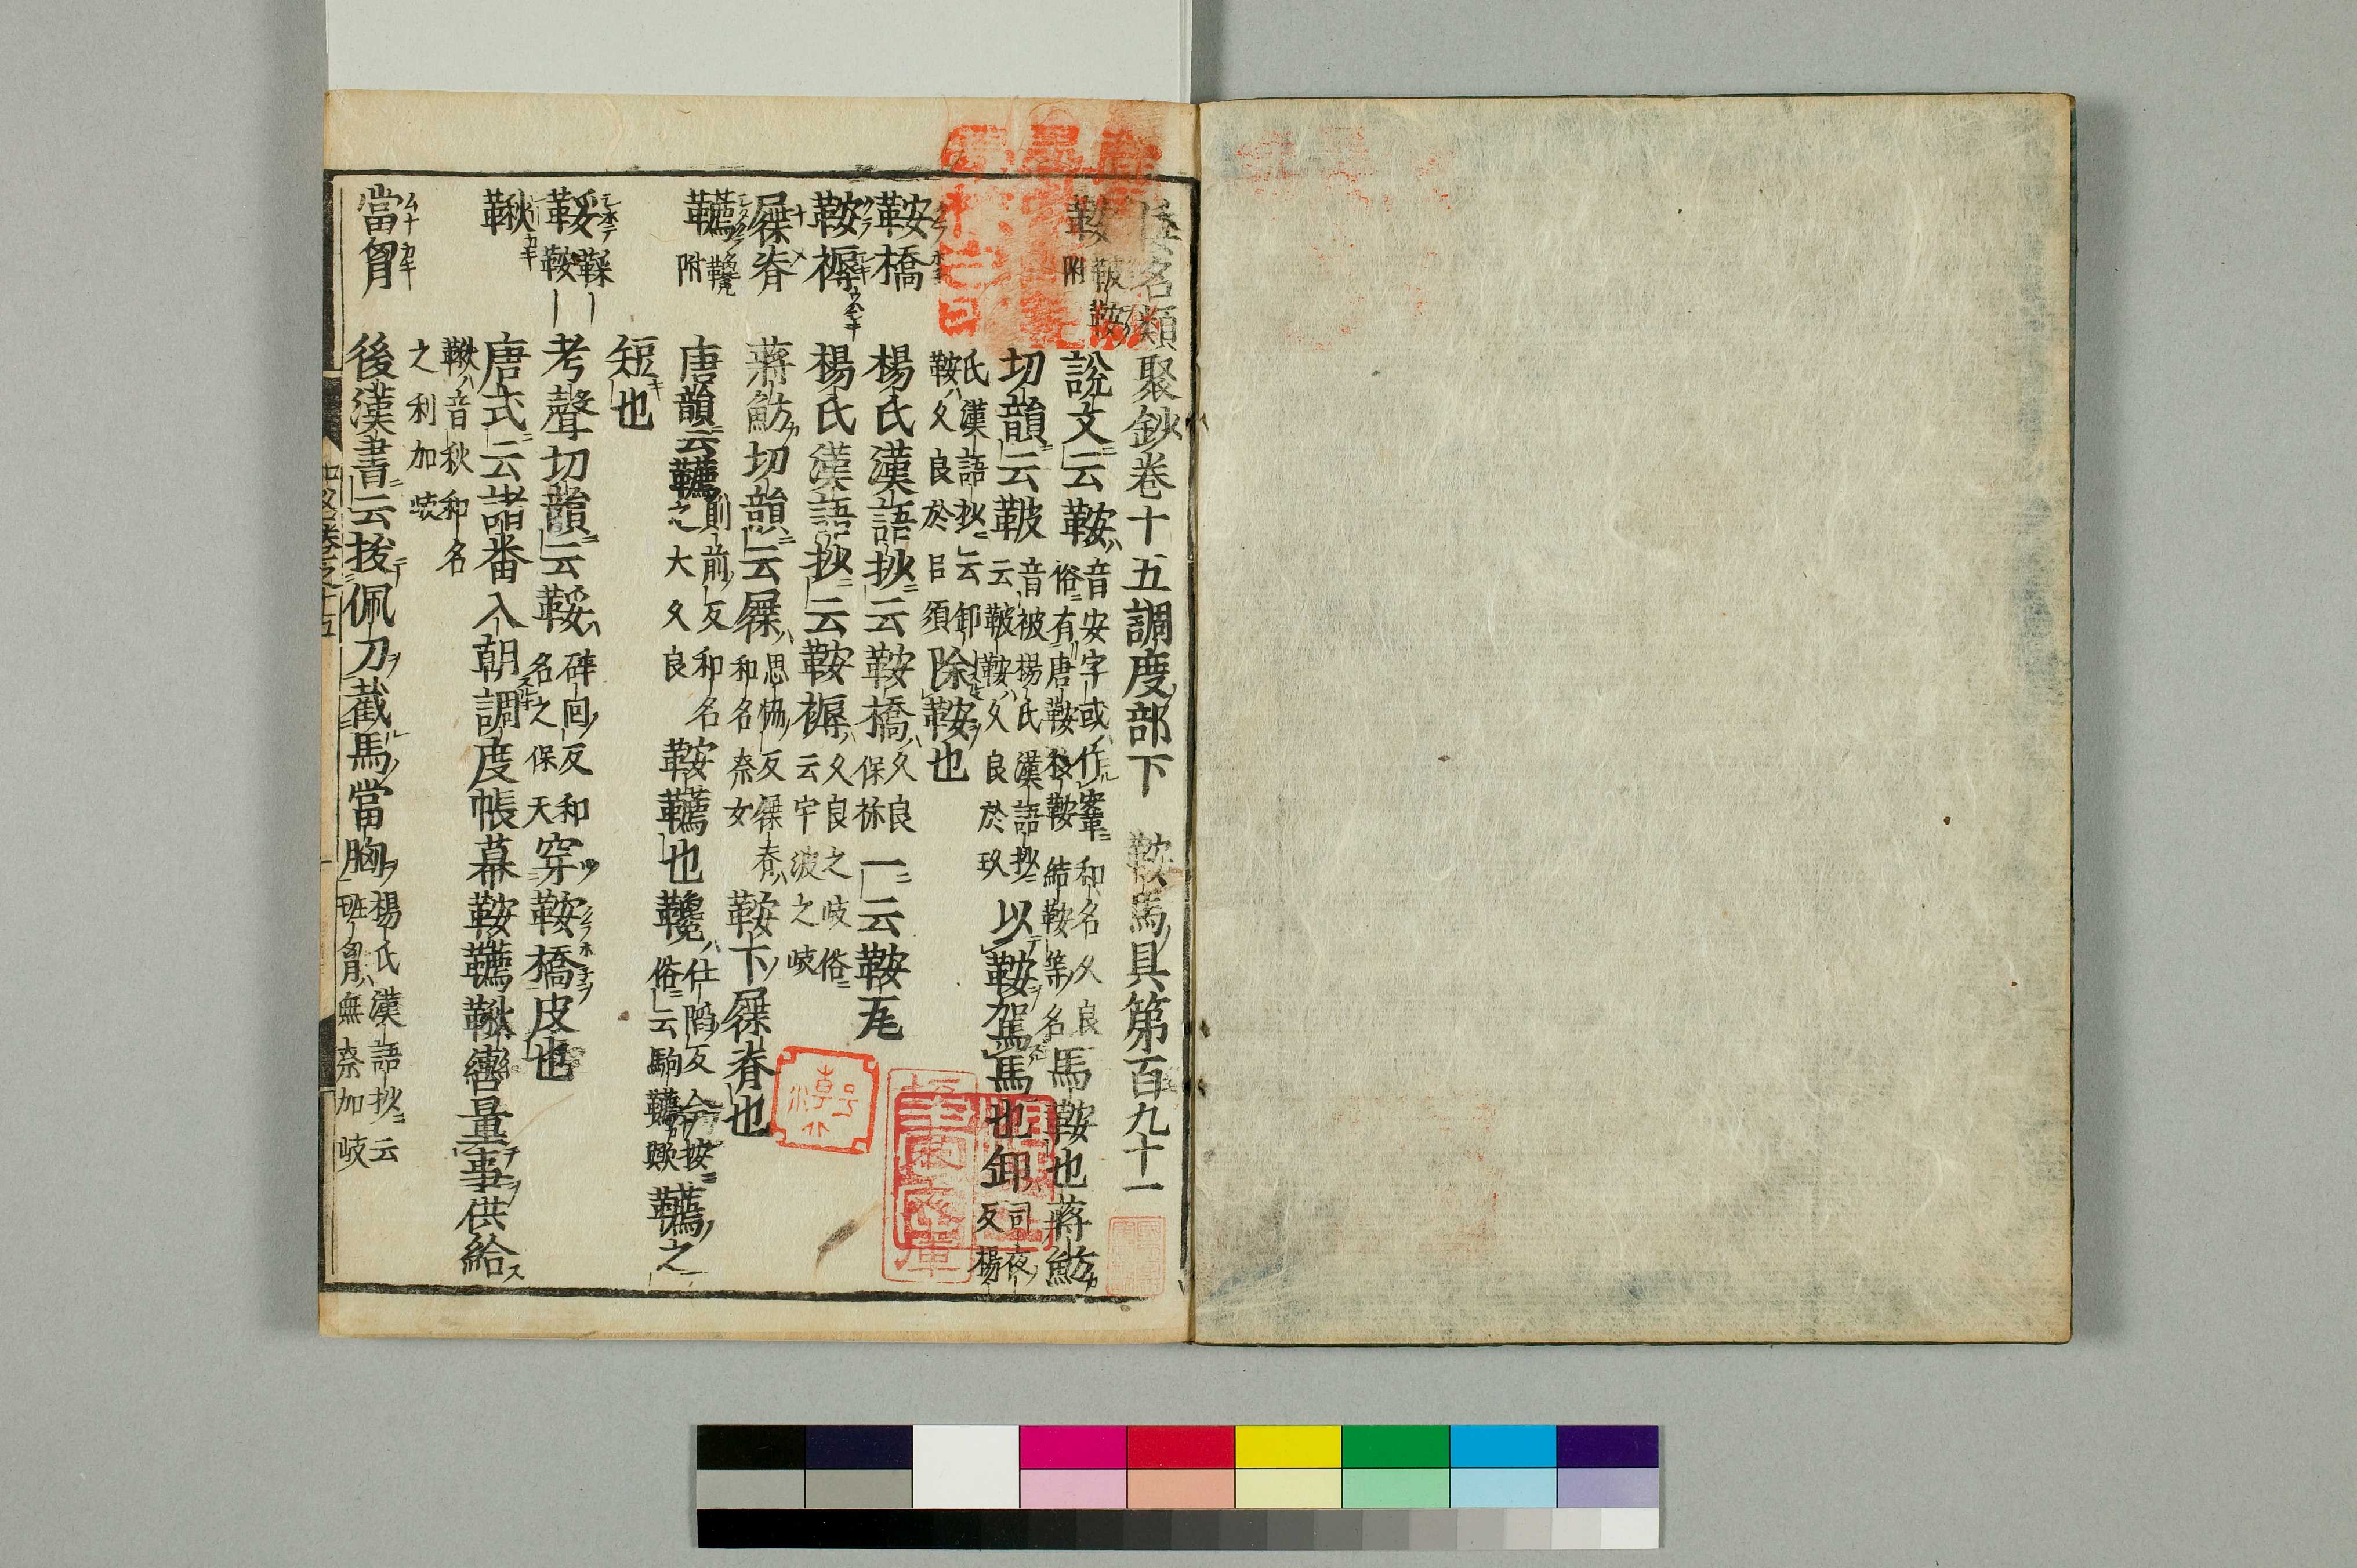 倭名類聚鈔卷十五調度部下 鞍馬具第百九十一
鞍 鞁鞍附 說文云鞍 音安字或作鞌和名久良俗有唐鞍移鞍結鞍等名 馬鞍也蔣魴
切韻云鞁 音被楊氏漢語抄云鞁鞍久良於玖 以鞍駕馬也卸 司夜反楊
氏漢語抄云卸鞍久良於呂須 除鞍也
鞍橋 楊氏漢語抄云鞍橋 久良保祢 一云鞍瓦
鞍褥 楊氏漢語抄云鞍褥 久良之岐俗云宇波之岐
屧脊 蔣魴切韻云屧 思協反屧脊和名奈女 鞍下屧脊也
韉 韉䪌附 唐韻云韉 則前反和名之太久良 鞍韉也䪌 仕陷反俗云駒韉今按 韉之
短也
鞖 鞖鞣 考聲切韻云鞖 碎回反和名之保天 穿鞍橋皮也
鞦 唐式云諸番入朝調度帳幕鞍韉鞦轡量事供給
鞦音秋和名之利加岐
當胷 後漢書云拔佩刀截馬當胸 楊氏漢語抄云班胷無奈加岐